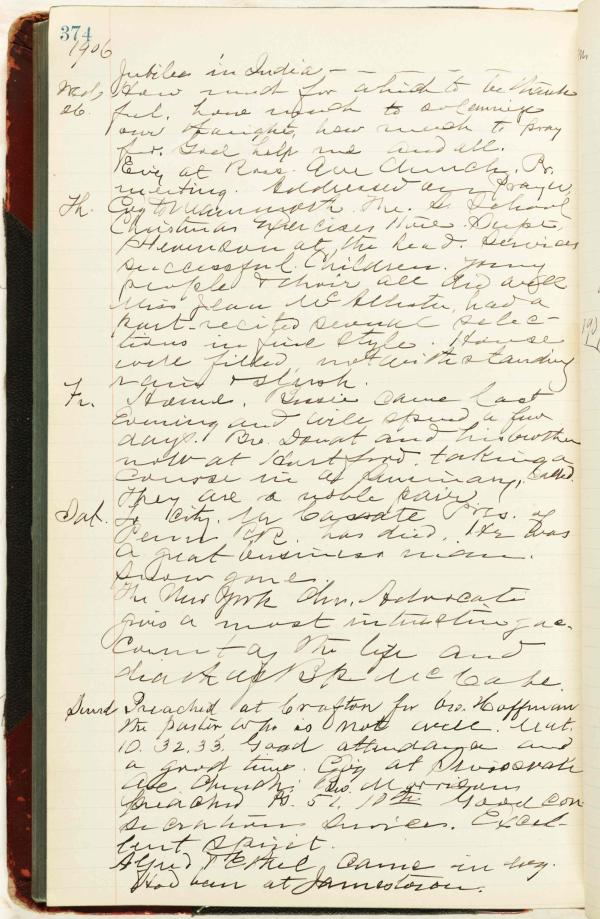 374
1906
Jubilee in India - - - - -
Wed, How much for which to be thank
26. ful, how much to
our thoughts, how much to pray
for. God help me and all.
Evg at Ross Ave Church. Pr.
meeting. Addressed any prayer
Th. Evg to Mammoth. The S. School
Christmas Exercises there. Supt,
Stevenson at the head. Services
successful. Children. young
people & choir all did well
Miss Jean McAllister, had a
part-recited several selec-
tions in fine style. House
well filled, notwithstanding
rain & slush.
Fr. Home. Bessie came last
Evening and will spend a few
days. Bro. Douat and his brother
now at Hartford. taking a
course in a Seminary, called.
They are a noble pair.
Sat. To City. Mr Cassate Pres. of
Penn RR. has died. He was
a great business man.
Snow gone.
The New York Chr. Advocate
gives a most interesting ac-
count of the life and
death of Bp. McCabe.
Preached at Crafton for Bro. Hoffman
the pastor who is not well. Mat.
10. 32, 33. Good attendance and
a good time. Evg at
Ave. Church; Bro. Morrison
preached Ps. 51. 10th Good con
secration services. Excel-
lent spirit.
Alfred & Ethel came in evg.
Had been at Jamestown.